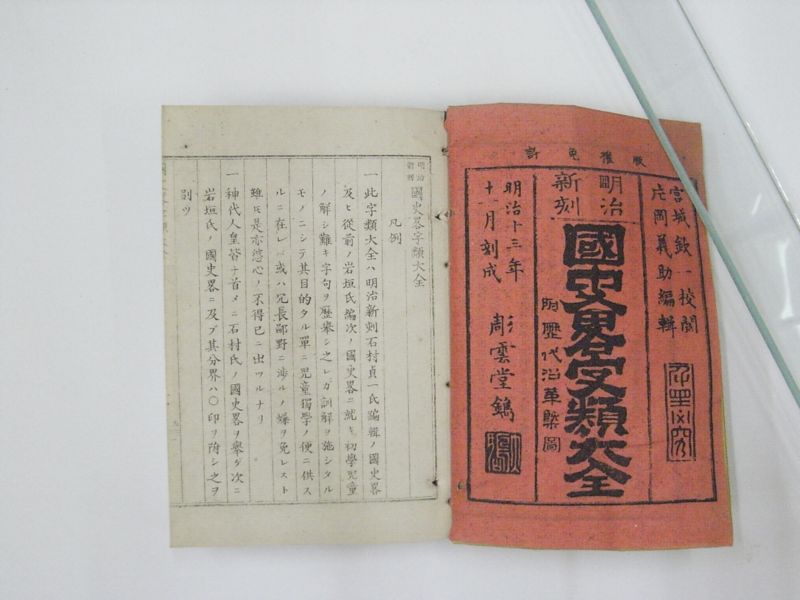 版權免許
宮城欽一校閲
片岡義助編輯
明治
新刻
國史畧字類大全
附歴代沿革槩圖
明治十三年
十一月刻成
彫雲堂鐫
明治
新刻
國史畧字類大全
凡例
一此字類大全ハ明治新刻石村貞一氏編輯ノ國史畧
及ヒ從前ノ岩垣氏編次ノ國史畧ニ就キ初學兒童
ノ解シ難キ字句ヲ歴擧シ之レガ訓解ヲ施シタル
モノニシテ其目的タル單ニ兒童獨學ノ便ニ供ス
ルニ在レバ或ハ冗長鄙野ニ渉ルノ嫌ヲ免レスト
雖ヒ是亦婆心ノ不得已ニ出ツルナリ
一神代人皇皆ナ首メニ石村氏ノ國史畧ヲ擧ゲ次ニ
岩垣氏ノ國史畧ニ及ブ其分界ハ〇印ヲ附シ之ヲ
別ツ